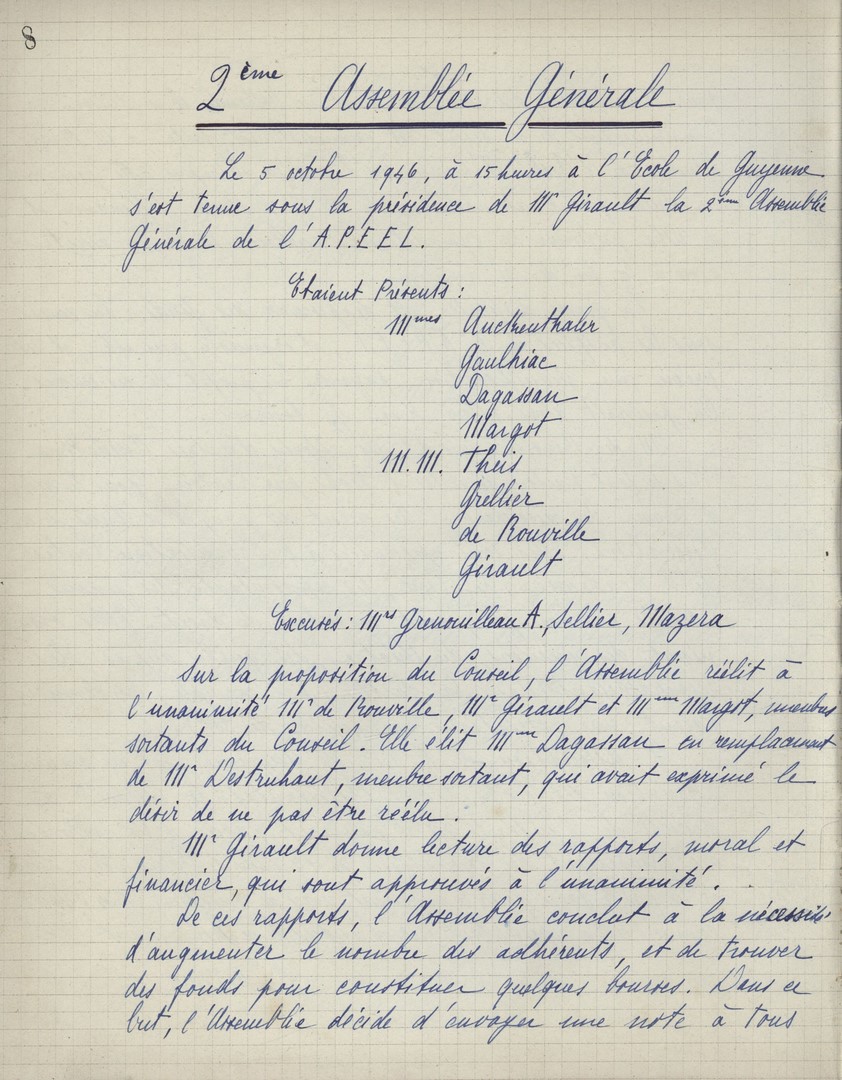 8
2ème Assemblée Générale
Le 5 octobre 1946, à 15 heures à l'Ecole de Guyenne
s'est tenue sous la présidence de Mr Girault la 2ème Assemblée
Générale de l'A.P.E.E.L.
Etaient Présents :
Mmes Auckenthaler
Gaulhiac
Dagassan
Margot
M.M. Theis
Grellier
de Rouville
Girault
Excusés : Mrs Grenouilleau A., Sellier, Mazera
Sur la proposition du Conseil, l'Assemblée réélit à
l'unanimité Mr de Rouville, Mr Girault et Mme Margot, membres
sortants du Conseil. Elle élit Mme Dagassan en remplacement
de Mr Destruhaut, membre sortant, qui avait exprimé le
désir de ne pas être réélu.
Mr Girault donne lecture des rapports, moral et
financier, qui sont approuvés à l'unanimité.
De ces rapports, l'Assemblée conclut à la nécessité
d'augmenter le nombre des adhérents, et de trouver
des fonds pour constituer quelques bourses. Dans ce
but, l'Assemblée décide d'envoyer une note à tous